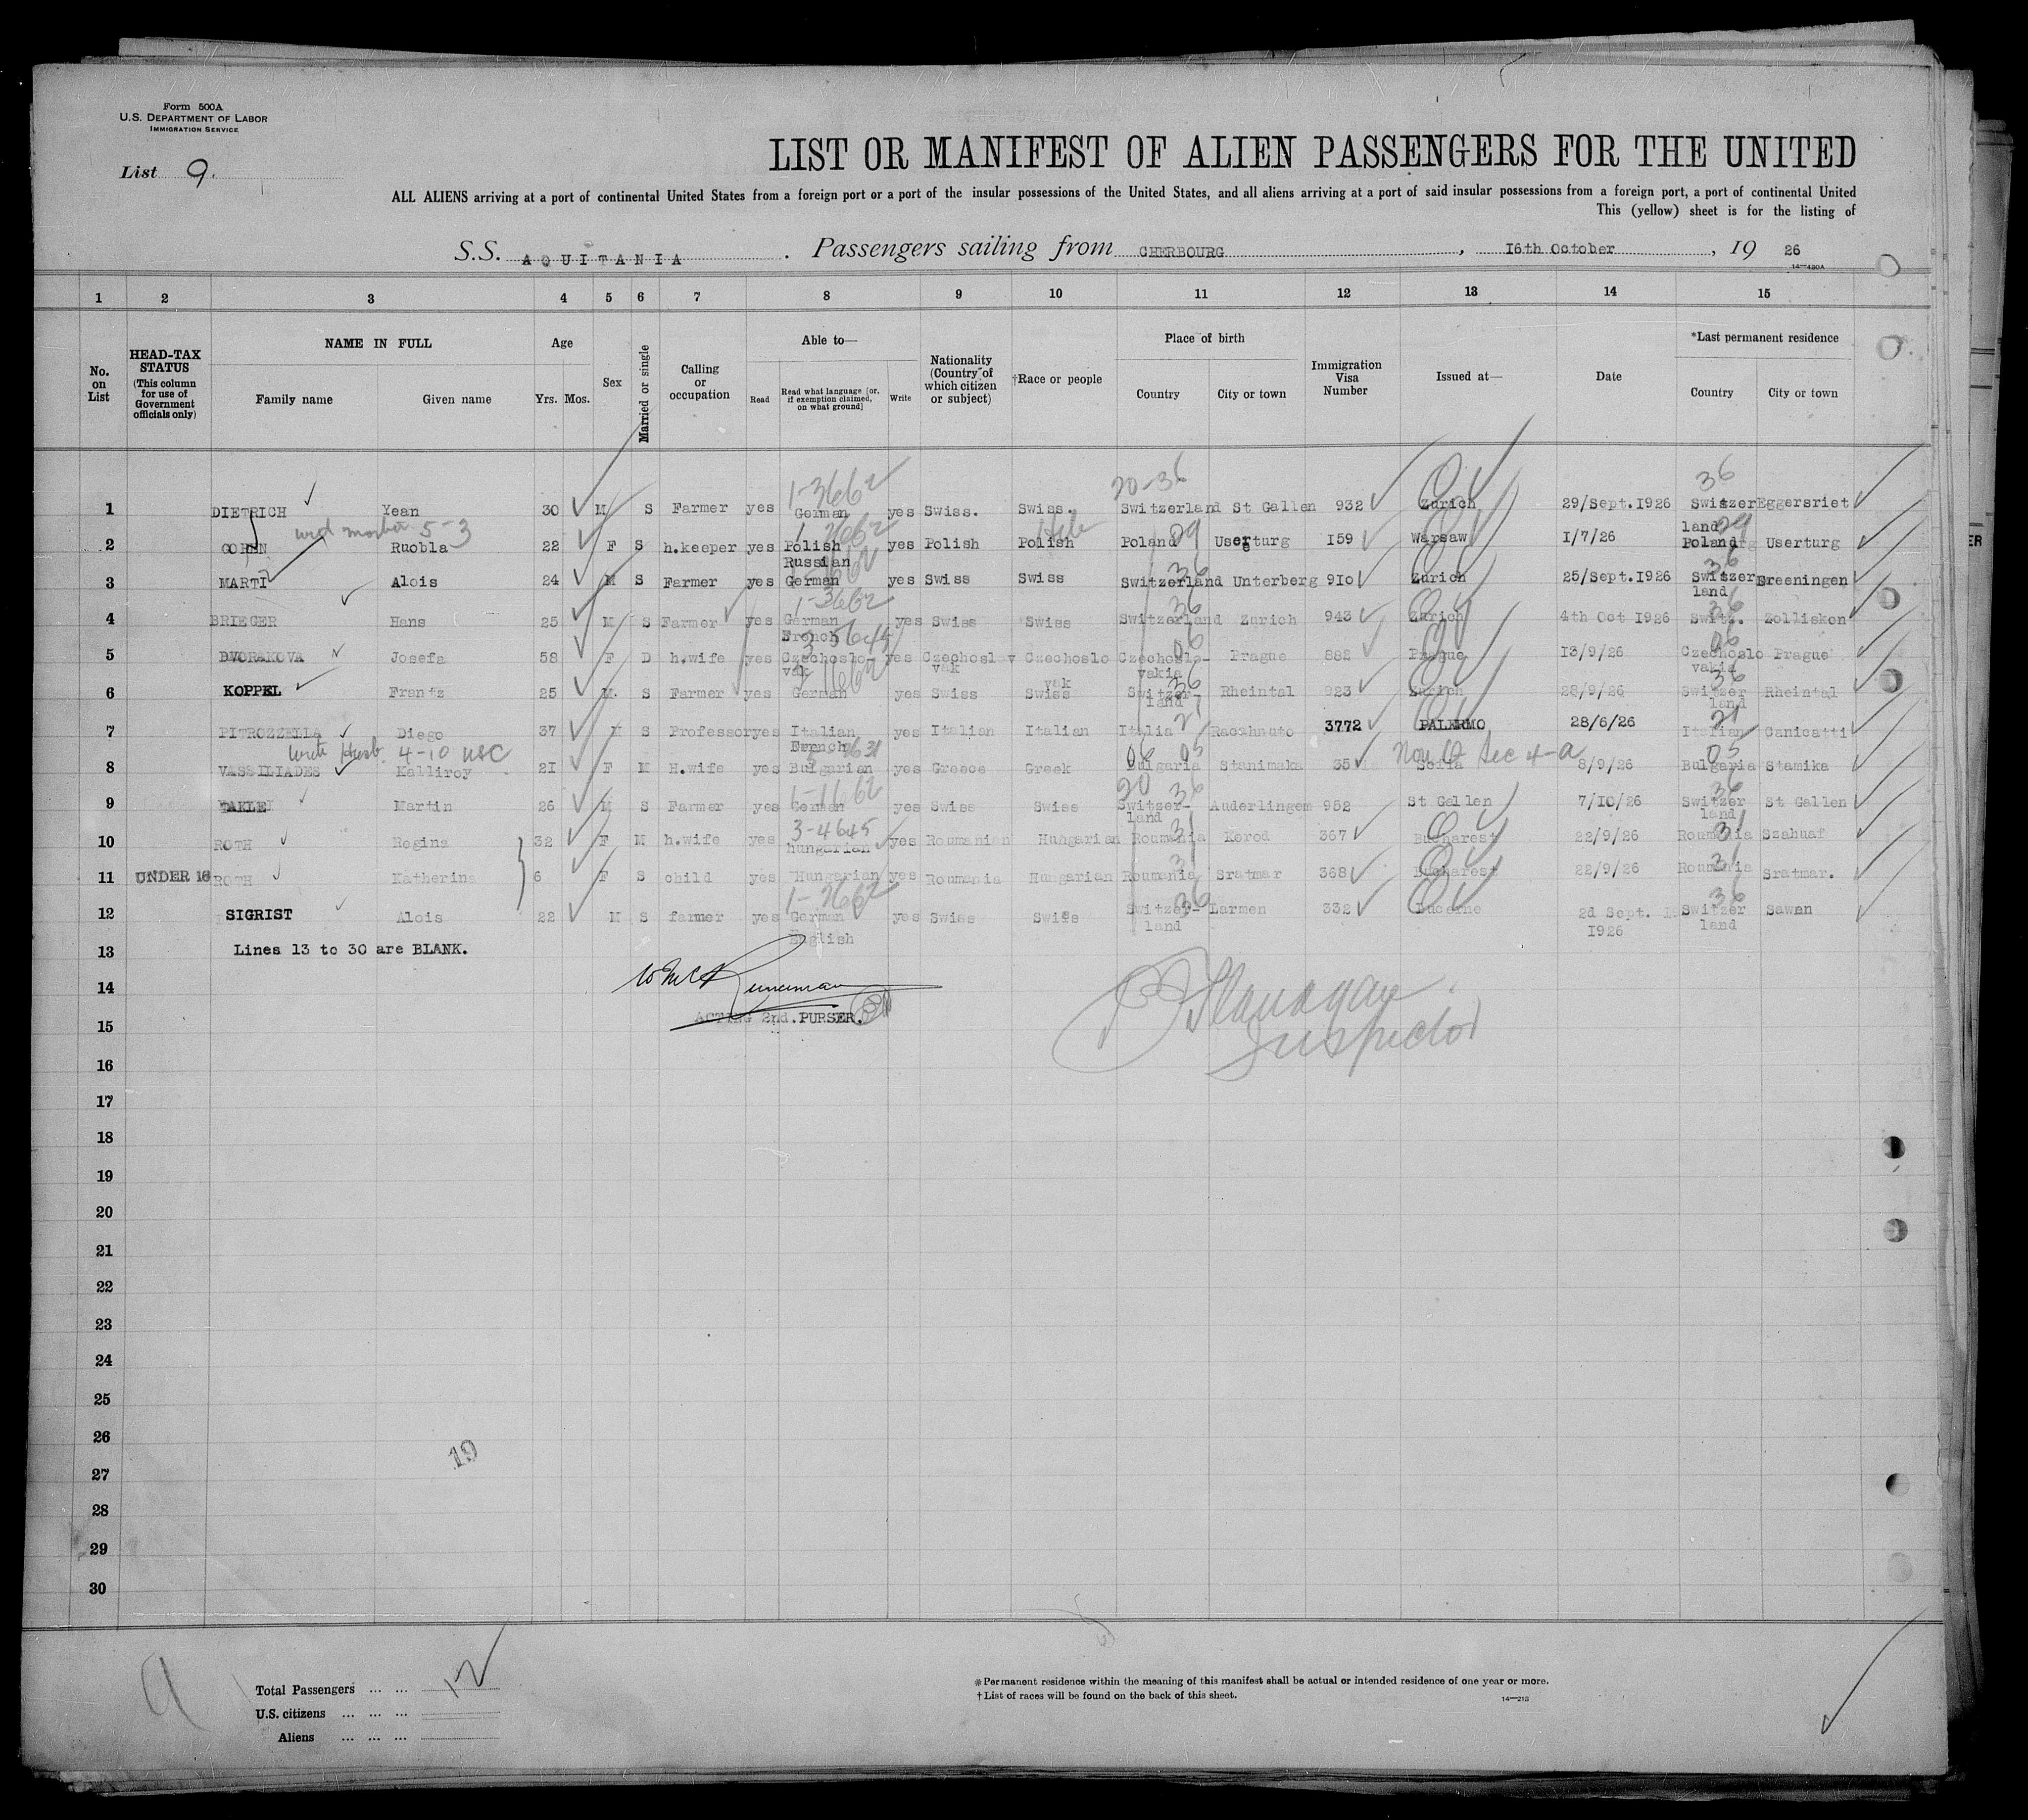 Form 500A
U.S. DEPARTMENT OF LABOR
IMMIGRATION SERVICE
List 9.
LIST OR MANIFEST OF ALIEN PASSENGERS FOR THE UNITED
ALL ALIENS arriving at a port of continental United States from a foreign port or a port of the insular possessions of the United States, and all aliens arriving at a port of said insular possessions from a foreign port, a port of continental United
This (yellow) sheet is for the listing of
S.S. AQUITANIA. Passengers sailing from CHERBOURG, 16th October, 19 26
14—430A
1 2 3 4 5 6 7 8 9 10 11 12 13 14 15
No. on List
HEAD-TAX STATUS (This column for use of Government officials only)
NAME IN FULL
Family name
Given name
Age
Yrs. Mos.
Sex
Married or single
Calling or occupation
Able to—
Read
Read what language [or, if exemption claimed, on what ground]
Write
Nationality (Country of which citizen or subject)
†Race or people
Place of birth
Country
City or town
Immigration Visa Number
Issued at—
Date
*Last permanent residence
Country
City or town
20-36 36
1-3662
1 DIETRICH Yean 30 M S Farmer yes German yes Swiss. Swiss. Switzerland St Gallen 932 Zurich 29/Sept.1926 Switzerland Eggersriet
5-3
2 COHEN Ruobla 22 F S h.keeper yes Polish Russian yes Polish Polish Poland 09 Userturg 159 Warsaw 1/7/26 Poland Userturg
3 MARTI Alois 24 M S Farmer yes German yes Swiss Swiss Switzerland 36 Unterberg 910 Zurich 25/Sept.1926 Switzerland Greeningen
1-3662
4 BRIEGER Hans 25 M S Farmer yes German French yes Swiss Swiss Switzerland 36 Zurich 943 Zurich 4th Oct 1926 Switz. 36 Zolliskon
5 DVORAKOVA Josefa 58 F D h.wife yes Czechoslovak yes Czechoslovvak Czechoslovak Czechoslo-vakia 06 Prague 882 Prague 13/9/26 Czechoslovakia 06 Prague
6 KOPPEL Frantz 25 M. S Farmer yes German yes Swiss Swiss Switzer-land 36 Rheintal 923 Zurich 28/9/26 Switzerland 36 Rheintal
7 PITROZZELLA Diego 37 M S Professor yes Italian French yes Italian Italian Italia 21 Racahnuto 3772 PALERMO 28/6/26 Italian 21 Canicatti
Husb. 4-10 USC
Non Q Sec 4-a
8 VASSILIADES Kalliroy 21 F M H.wife yes Bulgarian yes Greece Greek Bulgaria 05 Stanimaka 35 Sofia 8/9/26 Bulgaria 05 Stamika
1-1662
9 Martin 26 M S Farmer yes German yes Swiss Swiss Switzer-land 36 Auderlingem 952 St Gallen 7/10/26 Switzerland 36 St Gallen
3-4645
10 ROTH Regina 32 F M h.wife yes hungarian yes Roumanian Hungarian Roumania 31 Korod 367 Bucharest 22/9/26 Roumania 31 Szahuaf
11 UNDER 16 ROTH Katherina 6 F S child yes Hungarian yes Roumania Hungarian Roumania 31 Sratmar 368 Bucharest 22/9/26 Roumania 31 Sratmar.
12 SIGRIST Alois 22 M S farmer yes German English yes Swiss Swiss Switzer-land 36 Larmen 332 Lucerne 2d Sept. 1926 Switzerland 36 Sawan
13 Lines 13 to 30 are BLANK.
14
15 ACTING 2nd. PURSER.
Flanagan
Inspector
16
17
18
19
20
21
22
23
24
25
26
19
27
28
29
30
Total Passengers ... ... 12
U.S. citizens ... ... ...
Aliens ... ... ...
*Permanent residence within the meaning of this manifest shall be actual or intended residence of one year or more.
†List of races will be found on the back of this sheet.
14—213